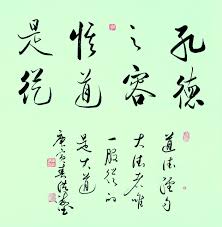 孔德
之容
惟道
是從
道德經句
大德者唯
一服從的
是大道
庚寅